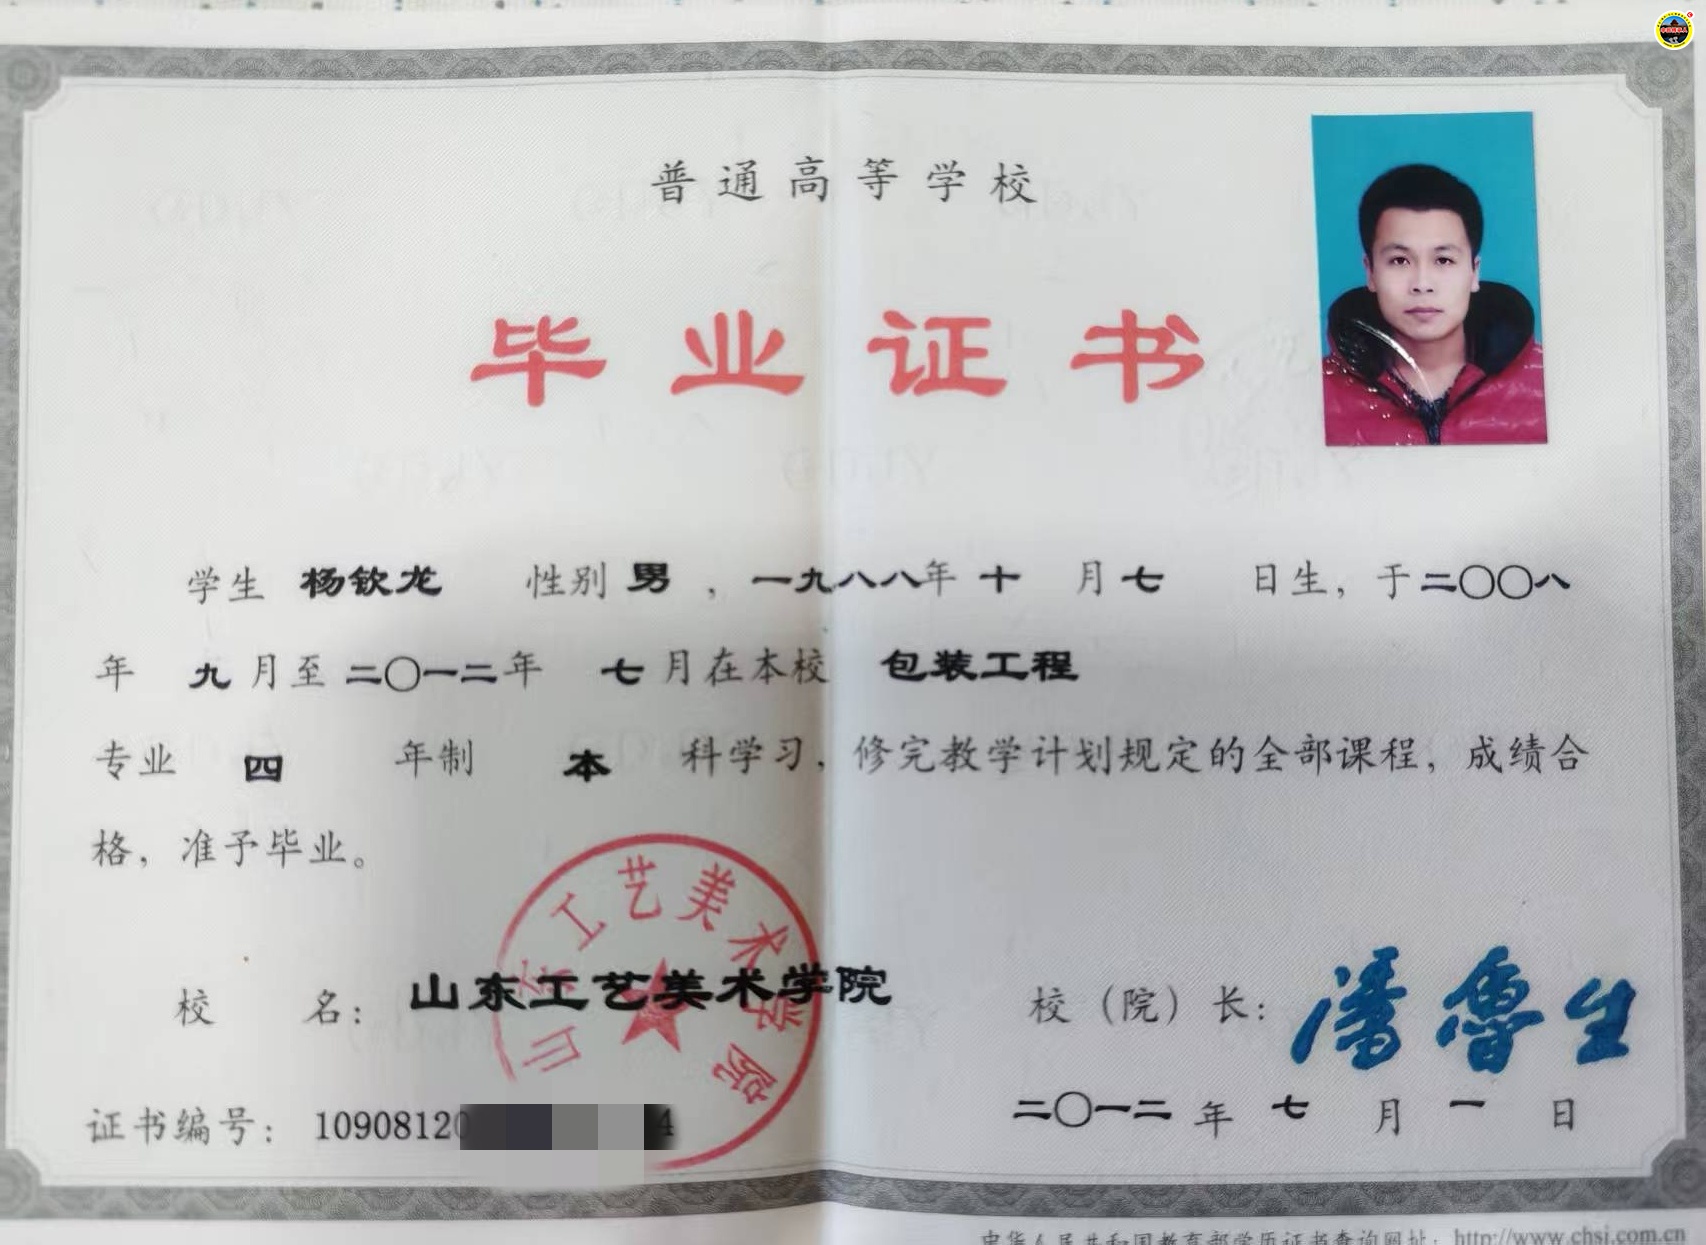 普通高等学校
毕业证书
学生 杨钦龙 性别 男 ，一九八八年 十 月 七 日生，于二〇〇八
年 九 月至 二〇一二年 七 月在本校 包装工程
专业 四 年制 本 科学习，修完教学计划规定的全部课程，成绩合
格，准予毕业。
山东工艺美术学院
校 名：山东工艺美术学院 校（院）长：潘鲁生
证书编号：10908120 4 二〇一二 年 七 月 一 日
中华人民共和国教育部学历证书查询网址：http://www.chsi.com.cn